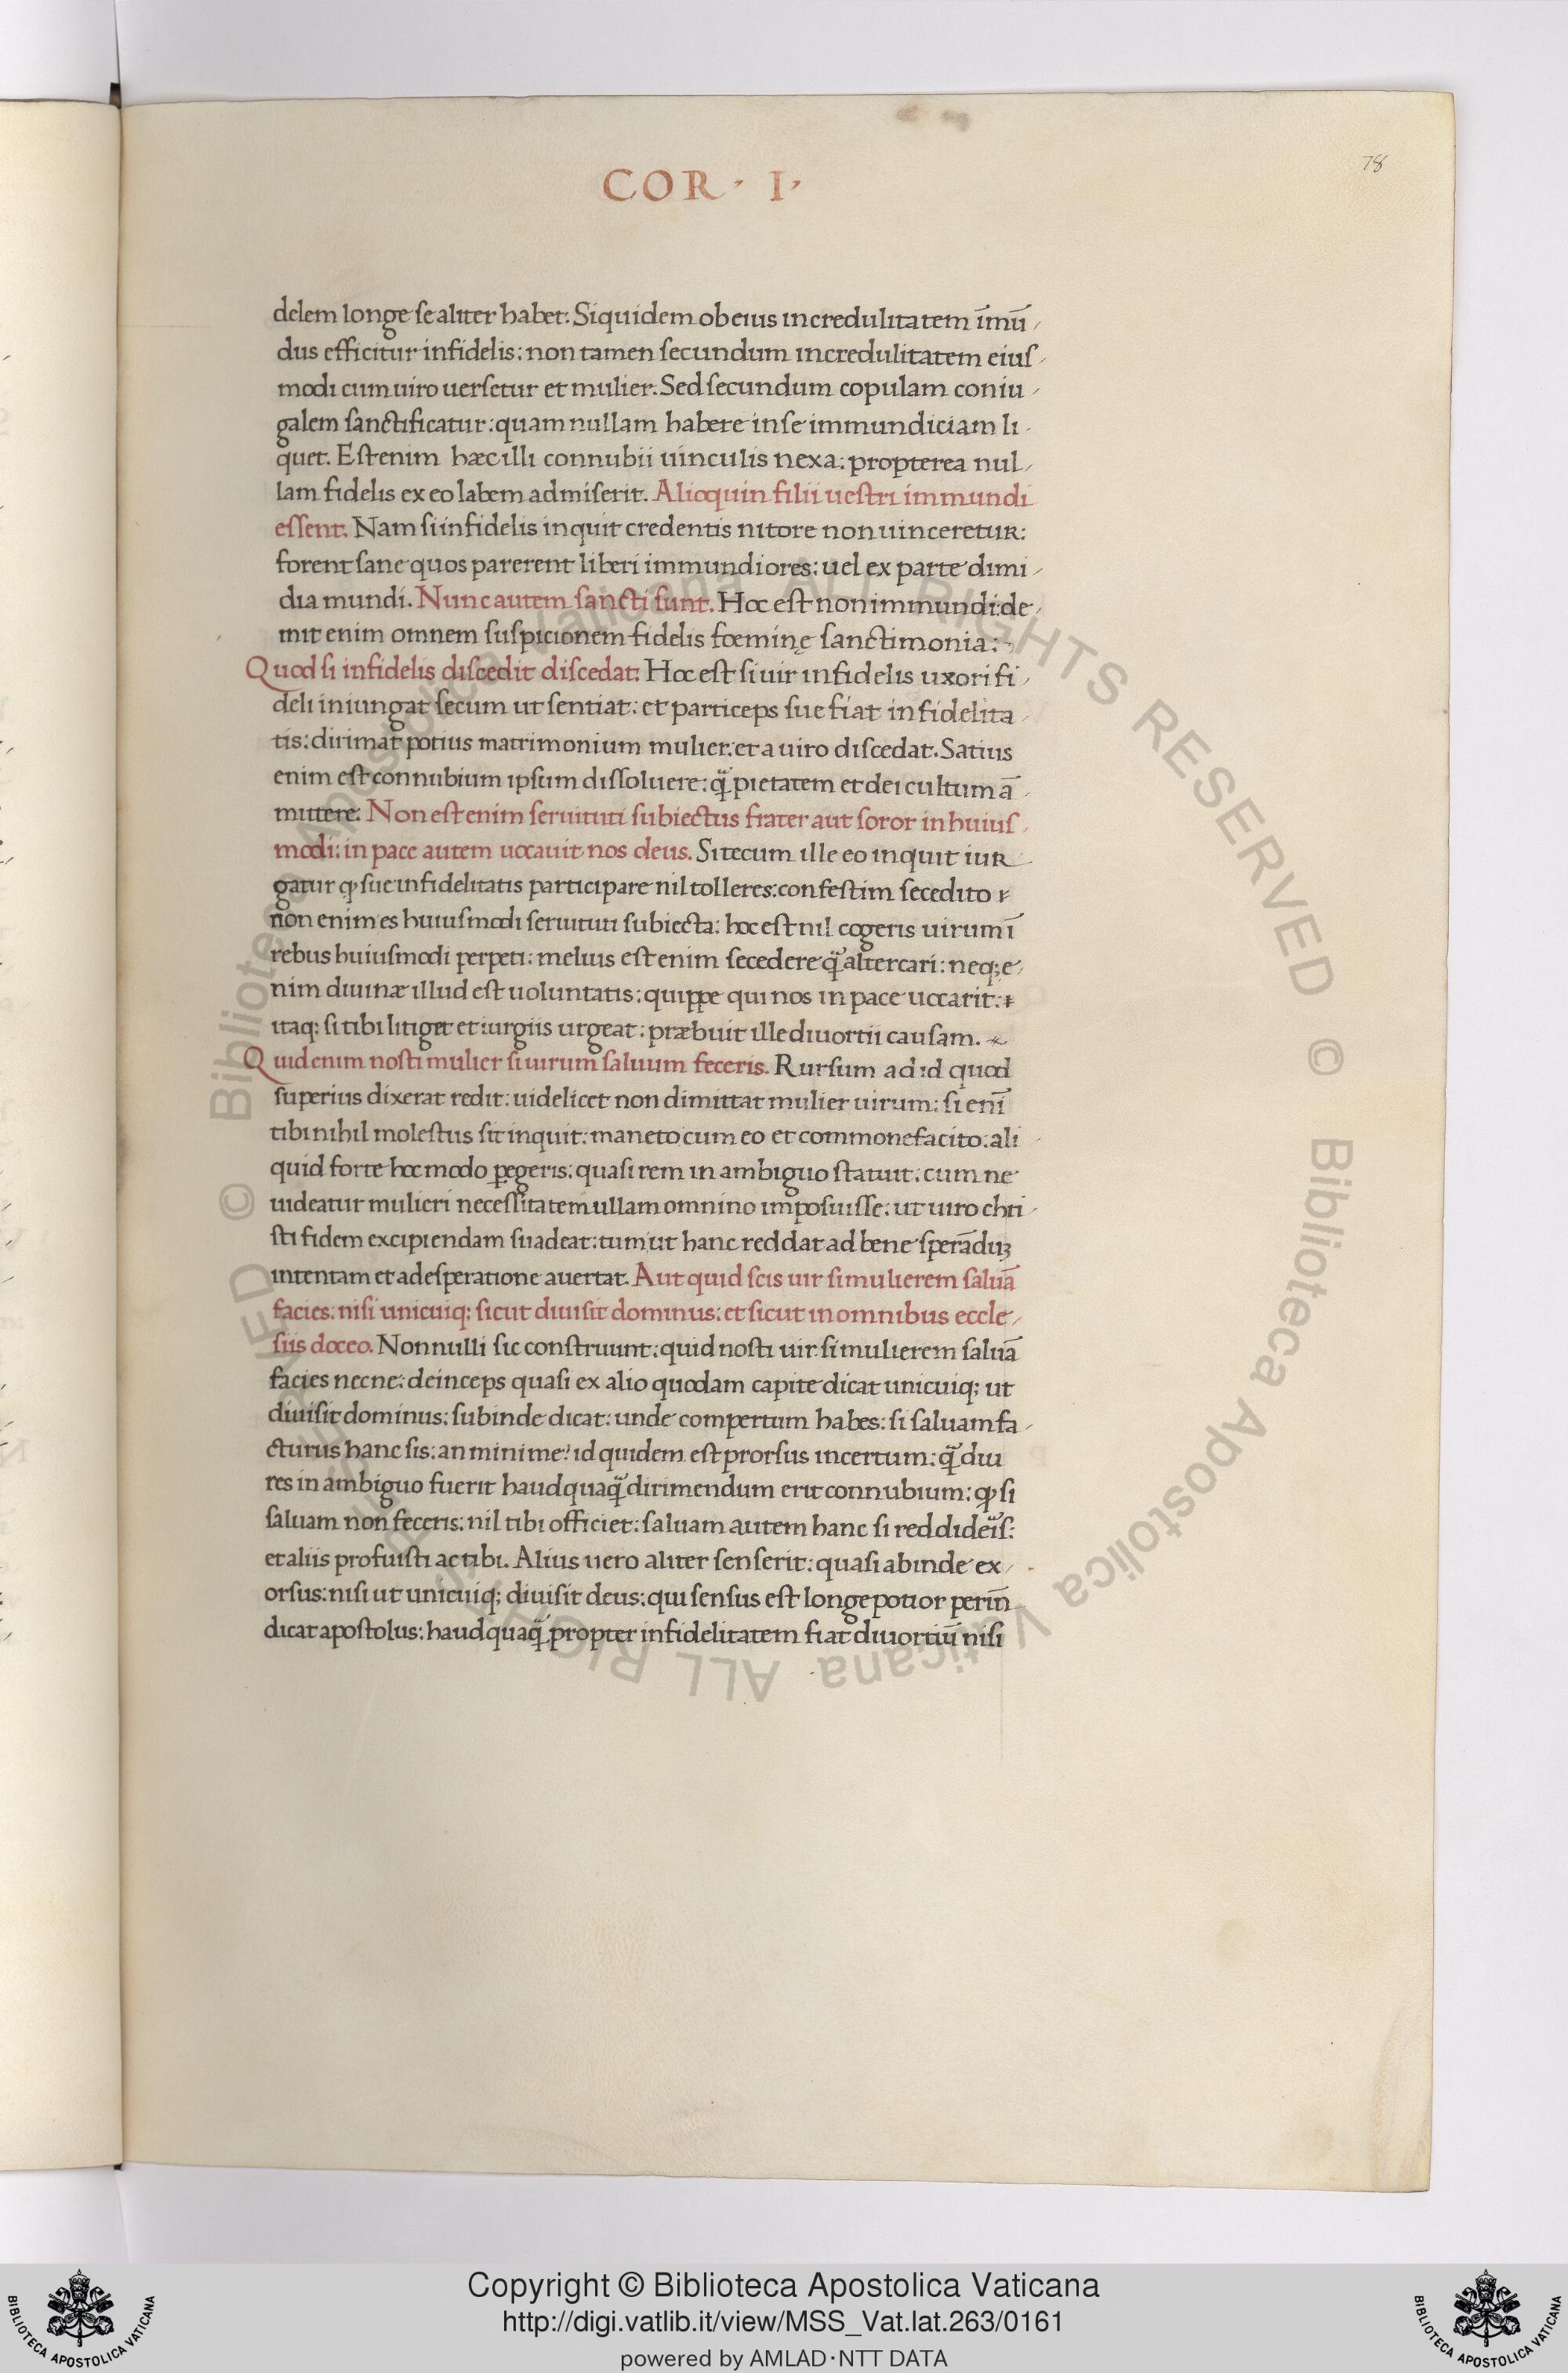 COR · I ·
78
delem longe se aliter habet: Siquidem ob eius incredulitatem īmū/
dus efficitur infidelis: non tamen secundum incredulitatem eius/
modi cum uiro uersetur et mulier: Sed secundum copulam coniu/
galem sanctificatur: quam nullam habere in se immundiciam li/
quet. Est enim hæc illi connubii uinculis nexa: propterea nul/
lam fidelis ex eo labem admiserit. Alioquin filii uestri immundi
essent. Nam si infidelis inquit credentis nitore non uinceretur:
forent sane quos parerent liberi immundiores: uel ex parte dimi/
dia mundi. Nunc autem sancti sunt. Hoc est non immundi: de/
mit enim omnem suspicionem fidelis foeminę sanctimonia:~
Quod si infidelis discedit discedat: Hoc est si uir infidelis uxori fi/
deli iniungat secum ut sentiat: et particeps sue fiat infidelita/
tis: dirimat potius matrimonium mulier: et a uiro discedat. Satius
enim est connubium ipsum dissoluere: q̃ pietatem et dei cultum ā/
mittere. Non est enim seruituti subiectus frater aut soror in huius/
modi: in pace autem uocauit nos deus. Si tecum ille eo inquit iur/
gatur ꝙ sue infidelitatis participare nil tolleres: confestim secedito
non enim es huiusmodi seruituti subiecta: hoc est nil cogeris uirum ī
rebus huiusmodi perpeti: melius est enim secedere q̃ altercari: neq; e/
nim diuinæ illud est uoluntatis: quippe qui nos in pace uocarit:
itaq; si tibi litiget et iurgiis urgeat: præbuit ille diuortii causam.
Quid enim nosti mulier si uirum saluum feceris. Rursum ad id quod
superius dixerat redit: uidelicet non dimittat mulier uirum: si enī
tibi nihil molestus sit inquit: maneto cum eo et commonefacito: ali/
quid forte hoc modo ꝑegeris: quasi rem in ambiguo statuit: cum ne
uideatur mulieri necessitatem ullam omnino imposuisse: ut uiro chri/
sti fidem excipiendam suadeat: tum ut hanc reddat ad bene sperādūʒ
intentam et a desperatione auertat. Aut quid scis uir si mulierem saluā
facies: nisi unicuiq; sicut diuisit dominus: et sicut in omnibus eccle/
siis doceo. Nonnulli sic construunt: quid nosti uir si mulierem saluā
facies necne: deinceps quasi ex alio quodam capite dicat unicuiq; ut
diuisit dominus: subinde dicat: unde compertum habes: si saluam fa/
cturus hanc sis: an minime? id quidem est prorsus incertum: q̃ diu
res in ambiguo fuerit haudquaq̃ dirimendum erit connubium: ꝙ si
saluam non feceris: nil tibi officiet: saluam autem hanc si reddideĩs:
et aliis profuisti ac tibi. Alius uero aliter senserit: quasi abinde ex/
orsus: nisi ut unicuiq; diuisit deus: qui sensus est longe potior perin̄
dicat apostolus: haudquaq̃ propter infidelitatem fiat diuortiū nisi
© Biblioteca Apostolica Vaticana ALL RIGHTS RESERVED
© Biblioteca Apostolica Vaticana ALL RIGHTS RESERVED
Copyright © Biblioteca Apostolica Vaticana
http://digi.vatlib.it/view/MSS_Vat.lat.263/0161
powered by AMLAD·NTT DATA
BIBLIOTECA APOSTOLICA VATICANA
BIBLIOTECA APOSTOLICA VATICANA